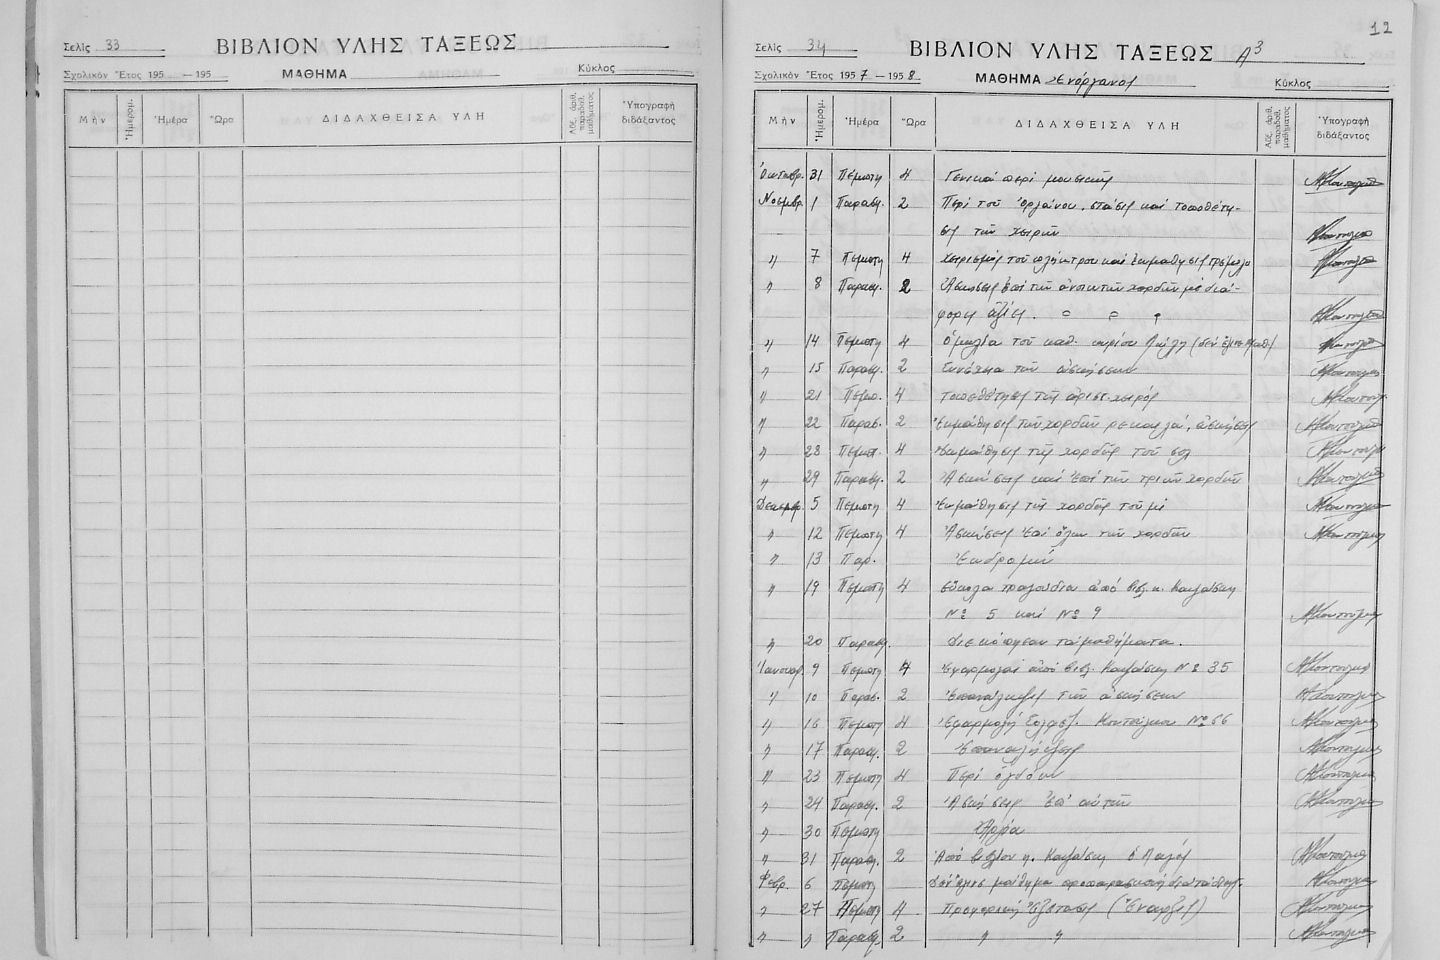 Σελίς 33
ΒΙΒΛΙΟΝ ΥΛΗΣ ΤΑΞΕΩΣ
Σχολικὸν Ἔτος 195 — 195
ΜΑΘΗΜΑ
Κύκλος
Μὴν Ἡμερομ. Ἡμέρα Ὥρα ΔΙΔΑΧΘΕΙΣΑ ΥΛΗ Αὔξ. ἀριθ. παραδοθ. μαθήματος Ὑπογραφὴ διδάξαντος
12
Σελὶς 34
ΒΙΒΛΙΟΝ ΥΛΗΣ ΤΑΞΕΩΣ Α3
Σχολικὸν Ἔτος 1957 — 1958
ΜΑΘΗΜΑ Ἐνόργανος
Κύκλος
Μὴν Ἡμερομ. Ἡμέρα Ὥρα ΔΙΔΑΧΘΕΙΣΑ ΥΛΗ Αὔξ. ἀριθ. παραδοθ. μαθήματος Ὑπογραφὴ διδάξαντος
Ὀκτωβρ. 31 Πέμπτη 4 Γενικὰ περὶ μουσικῆς
Νοεμβρ. 1 Παρασκ. 2 Περὶ τοῦ ὀργάνου, στάσις καὶ τοποθέτη-
σις τῶν χειρῶν
〃 7 Πέμπτη 4 Χειρισμὸς τοῦ πλήκτρου καὶ ἐκμάθησις τρέμολο
〃 8 Παρασκ. 2 Ἀσκήσεις ἐπὶ τῶν ἀνοικτῶν χορδῶν μὲ δια-
φόρους ἀξίας.
〃 14 Πέμπτη 4 Ὁμιλία τοῦ καθ. κυρίου
〃 15 Παρασκ. 2 Συνέχεια τῶν ἀσκήσεων
〃 21 Πέμπ. 4 Τοποθέτησις τῆς ἀριστ. χειρός
〃 22 Παρασ. 2 Ἐκμάθησις τῶν χορδῶν ρὲ καὶ λά, ἀσκήσεις
〃 28 Πέμπτ. 4 Ἐκμάθησις τῆς χορδῆς τοῦ σολ
〃 29 Παρασκ. 2 Ἀσκήσεις καὶ ἐπὶ τῶν τριῶν χορδῶν
Δεκεμβρ. 5 Πέμπτη 4 Ἐκμάθησις τῆς χορδῆς τοῦ μὶ
〃 12 Πέμπτη 4 Ἀσκήσεις ἐπὶ ὅλων τῶν χορδῶν
〃 13 Παρ. Ἐκδρομή
〃 19 Πέμπτη 4 Εὔκολα τραγούδια ἀπὸ βιβλ. κ.
Νο 5 καὶ Νο 9
〃 20 Παρασκ. Διεκόπησαν τὰ μαθήματα.
Ἰανουαρ. 9 Πέμπτη 4 Ἐφαρμογαὶ ἀπὸ βιβλ. Νο 35
〃 10 Παρασ. 2 Ἐπανάληψις τῶν ἀσκήσεων
〃 16 Πέμπτη 4 Ἐφαρμογὴ Σολφέζ. Νο 66
〃 17 Παρασκ. 2 Ἐπαναλήψεις
〃 23 Πέμπτη 4 Περὶ ὀγδόων
〃 24 Παρασκ. 2 Ἀσκήσεις ἐπ' αὐτῶν
〃 30 Πέμπτη Ἀργία
〃 31 Παρασκ. 2 Ἀπὸ βιβλίον κ. ὁ Λαγός
Φεβρ. 6 Πέμπτη Δὲν ἔγινε μάθημα
〃 27 Πέμπτη 4 Προφορικὴ ἐξέτασις (Ἔναρξις)
〃 〃 Παρασκ. 2 〃 〃